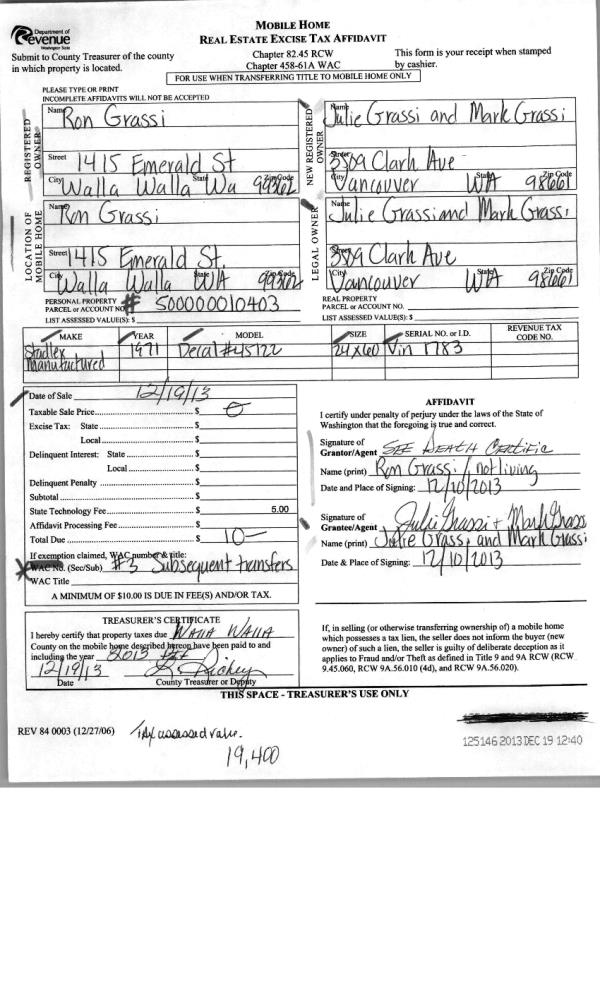 Department of
Revenue
Washington State
MOBILE HOME
REAL ESTATE EXCISE TAX AFFIDAVIT
Submit to County Treasurer of the county
in which property is located.
Chapter 82.45 RCW
Chapter 458-61A WAC
This form is your receipt when stamped
by cashier.
FOR USE WHEN TRANSFERRING TITLE TO MOBILE HOME ONLY
PLEASE TYPE OR PRINT
INCOMPLETE AFFIDAVITS WILL NOT BE ACCEPTED
REGISTERED OWNER
Name Ron Grassi
Street 1415 Emerald St
City Walla Walla State Wa Zip Code 99362
NEW REGISTERED OWNER
Name Julie Grassi and Mark Grassi
Street 3509 Clark Ave
City Vancouver State WA Zip Code 98661
LOCATION OF MOBILE HOME
Name Ron Grassi
Street 1415 Emerald St.
City Walla Walla State WA Zip Code 99362
LEGAL OWNER
Name Julie Grassi and Mark Grassi
Street 3509 Clark Ave
City Vancouver State WA Zip Code 98661
PERSONAL PROPERTY
PARCEL or ACCOUNT NO. # 500000010403
LIST ASSESSED VALUE(S): $
REAL PROPERTY
PARCEL or ACCOUNT NO.
LIST ASSESSED VALUE(S): $
MAKE YEAR MODEL SIZE SERIAL NO. or I.D. REVENUE TAX CODE NO.
Manufactured 1971 Decal #45722 24x60 Vin 1783
Date of Sale 12/19/13
Taxable Sale Price $ 0
Excise Tax: State $
Local $
Delinquent Interest: State $
Local $
Delinquent Penalty $
Subtotal $
State Technology Fee $ 5.00
Affidavit Processing Fee $
Total Due $ 10—
If exemption claimed, WAC number & title:
WAC No. (Sec/Sub) #3 Subsequent transfers
WAC Title
A MINIMUM OF $10.00 IS DUE IN FEE(S) AND/OR TAX.
AFFIDAVIT
I certify under penalty of perjury under the laws of the State of
Washington that the foregoing is true and correct.
Signature of
Grantor/Agent SEE DEATH Certific
Name (print) Ron Grassi / not living
Date and Place of Signing: 12/10/2013
Signature of
Grantee/Agent Julie Grassi + Mark Grass
Name (print) Julie Grassi and Mark Grassi
Date & Place of Signing: 12/10/2013
TREASURER'S CERTIFICATE
I hereby certify that property taxes due Walla Walla
County on the mobile home described hereon have been paid to and
including the year 2013
12/19/13
Date County Treasurer or Deputy
If, in selling (or otherwise transferring ownership of) a mobile home
which possesses a tax lien, the seller does not inform the buyer (new
owner) of such a lien, the seller is guilty of deliberate deception as it
applies to Fraud and/or Theft as defined in Title 9 and 9A RCW (RCW
9.45.060, RCW 9A.56.010 (4d), and RCW 9A.56.020).
THIS SPACE - TREASURER'S USE ONLY
REV 84 0003 (12/27/06)
assessed value.
19,400
125146 2013 DEC 19 12:40